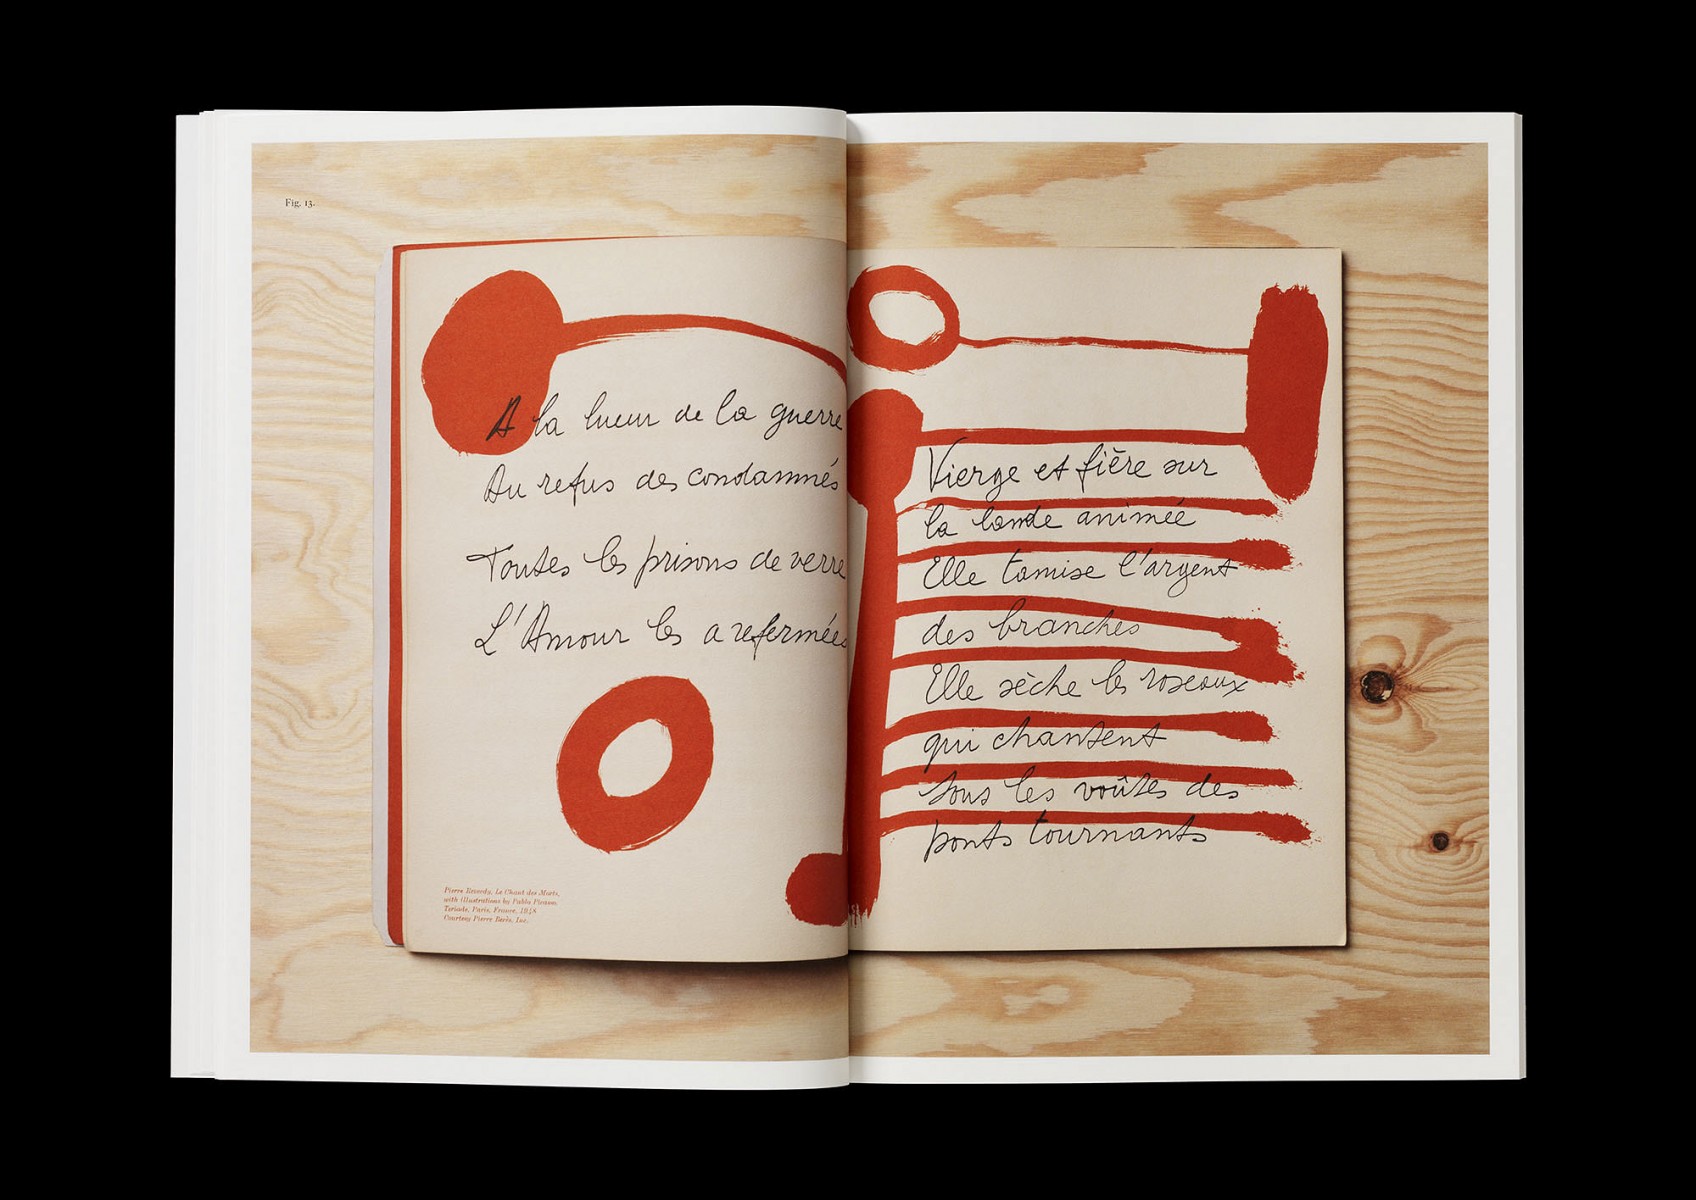 Fig. 13.
A la lueur de la guerre
Au refus des condamnés
Toutes les prisons de verre
L'Amour les a refermées
Pierre Reverdy, Le Chant des Morts,
with illustrations by Pablo Picasso
Teriade, Paris, France, 1948
Courtesy Pierre Berès, Inc.
Vierge et fière sur
la bande animée
Elle tamise l'argent
des branches
Elle sèche les roseaux
qui chantent
sous les voûtes des
ponts tournants